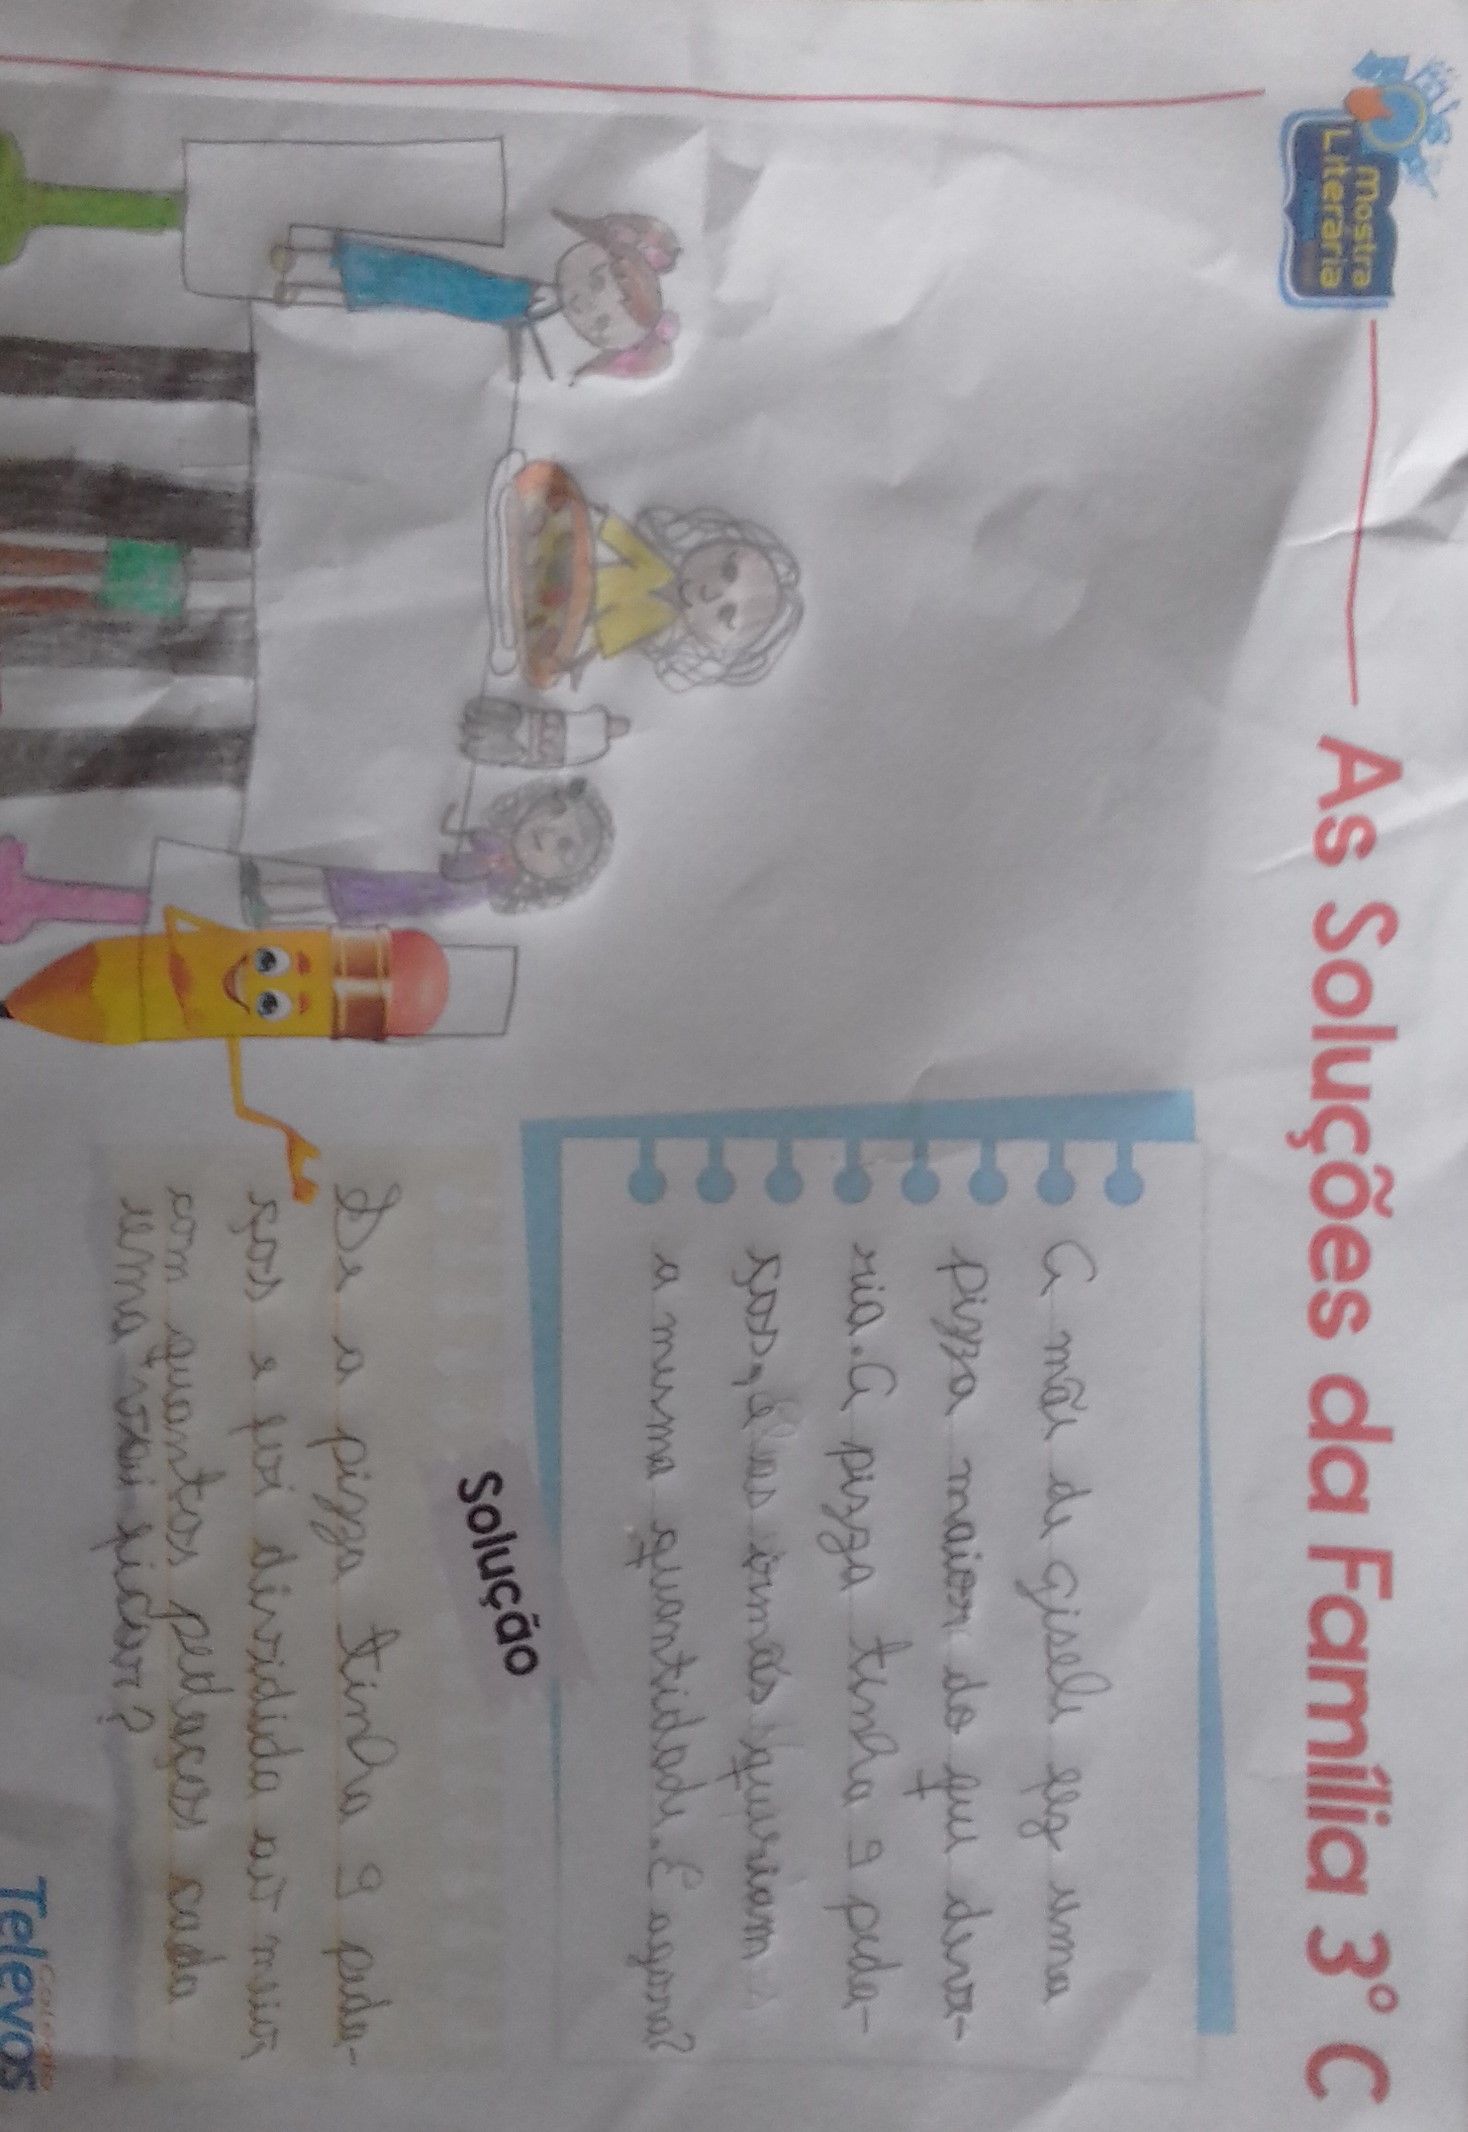 Mostra
Literária
As Soluções da Família 3º C
A mãe de gisele fez uma
pizza maior do que deve-
ria. A pizza tinha 9 peda-
ços, e as irmãs queriam
a mesma quantidade. E agora?
Solução
Se a pizza tinha 9 peda-
ços e foi dividida ao meio,
com quantos pedaços cada
uma vai ficar?
Televos